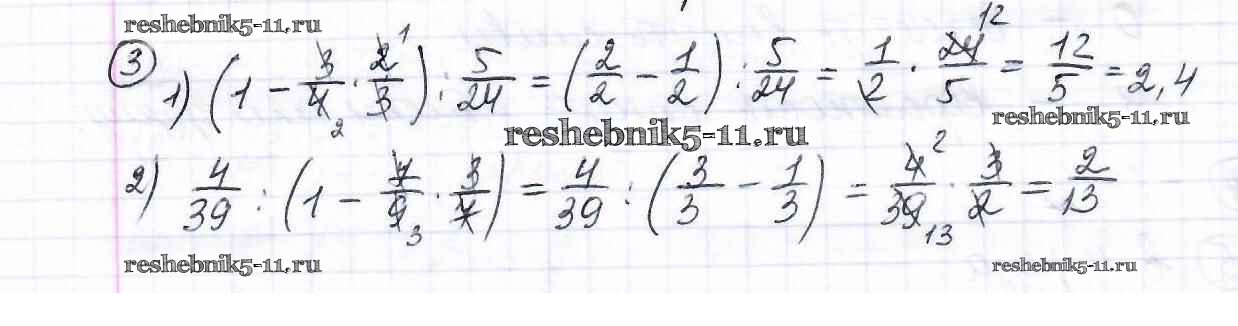 reshebnik5-11.ru
③ 1) (1 - 3/4 · 2/3) : 5/24 = (2/2 - 1/2) : 5/24 = 1/2 · 24/5 = 12/5 = 2,4
reshebnik5-11.ru
reshebnik5-11.ru
2) 4/39 : (1 - 7/9 · 3/7) = 4/39 : (3/3 - 1/3) = 4/39 · 3/2 = 2/13
reshebnik5-11.ru
reshebnik5-11.ru